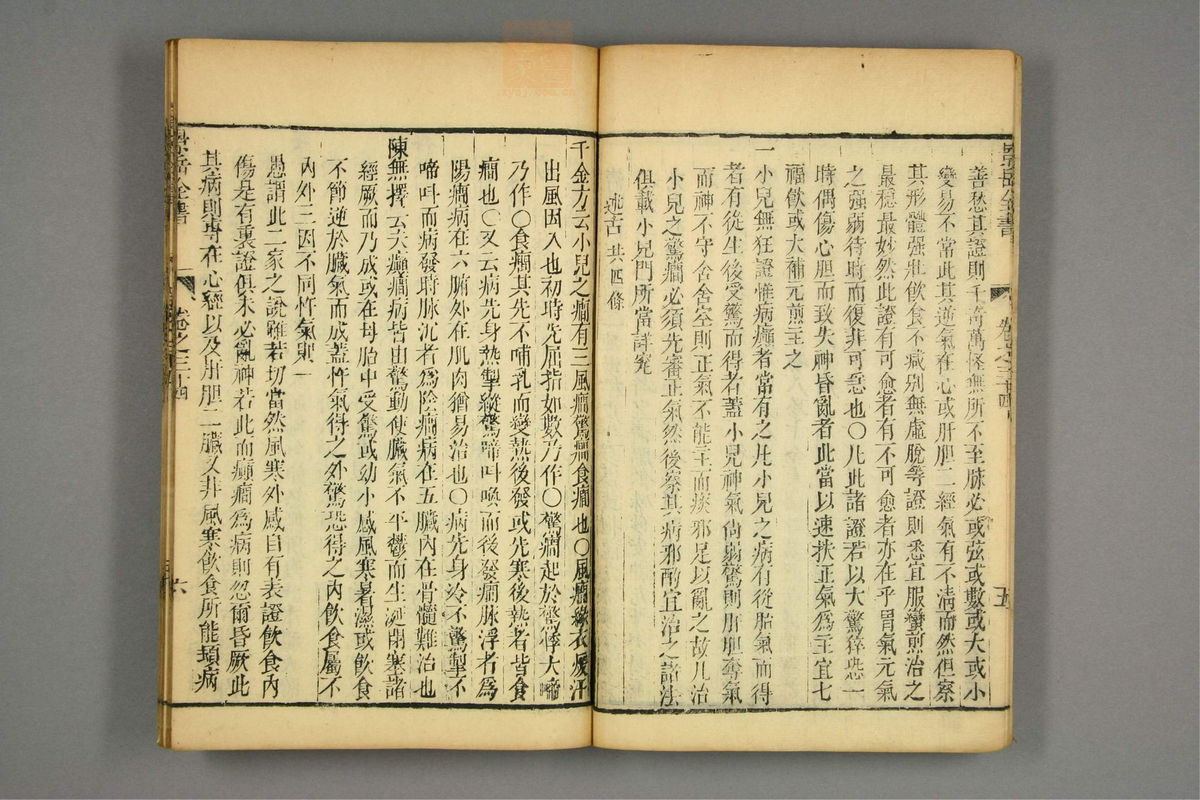 景岳全書
卷之三十四
五
善愁其證則千奇萬怪無所不至脉必或弦或數或大或小
變易不常此其逆氣在心或肝胆二經氣有不淸而然但察
其形體强壯飲食不減別無虛脫等證則悉宜服蠻煎治之
最穩最妙然此證有可愈者有不可愈者亦在乎胃氣元氣
之强弱待時而復非可急也〇凡此諸證若以大驚猝恐一
時偶傷心胆而致失神昏亂者此當以速扶正氣爲主宜七
福飲或大補元煎主之
一小兒無狂證惟病癲者常有之凡小兒之病有從胎氣而得
者有從生後受驚而得者蓋小兒神氣尙弱驚則肝胆奪氣
而神不守舍舍空則正氣不能主而痰邪足以亂之故凡治
小兒之驚癎必須先審正氣然後察其病邪酌宜治之諸法
俱載小兒門所當詳究
述古共四條
千金方云小兒之癎有三風癎驚癎食癎也〇風癎緣衣煖汗
出風因入也初時先屈指如數乃作〇驚癎起於驚悸大啼
乃作〇食癎其先不哺乳而變熱後發或先寒後熱者皆食
癎也〇又云病先身熱掣瘲驚啼呌喚而後發癎脉浮者爲
陽癎病在六腑外在肌肉猶易治也〇病先身冷不驚掣不
啼呌而病發時脉沉者爲陰癎病在五臟內在骨髓難治也
陳無擇云夫癲癎病皆由驚動使臟氣不平鬱而生涎閉塞諸
經厥而乃成或在母胎中受驚或幼小感風寒暑濕或飲食
不節逆於臟氣而成蓋忤氣得之外驚恐得之內飲食屬不
內外三因不同忤氣則一
愚謂此二家之說雖若切當然風寒外感自有表證飲食內
傷是有裏證俱未必亂神若此而癲癎爲病則忽爾昏厥此
其病則專在心經以及肝胆二臟又非風寒飲食所能頓病
景岳全書
卷之三十四
六